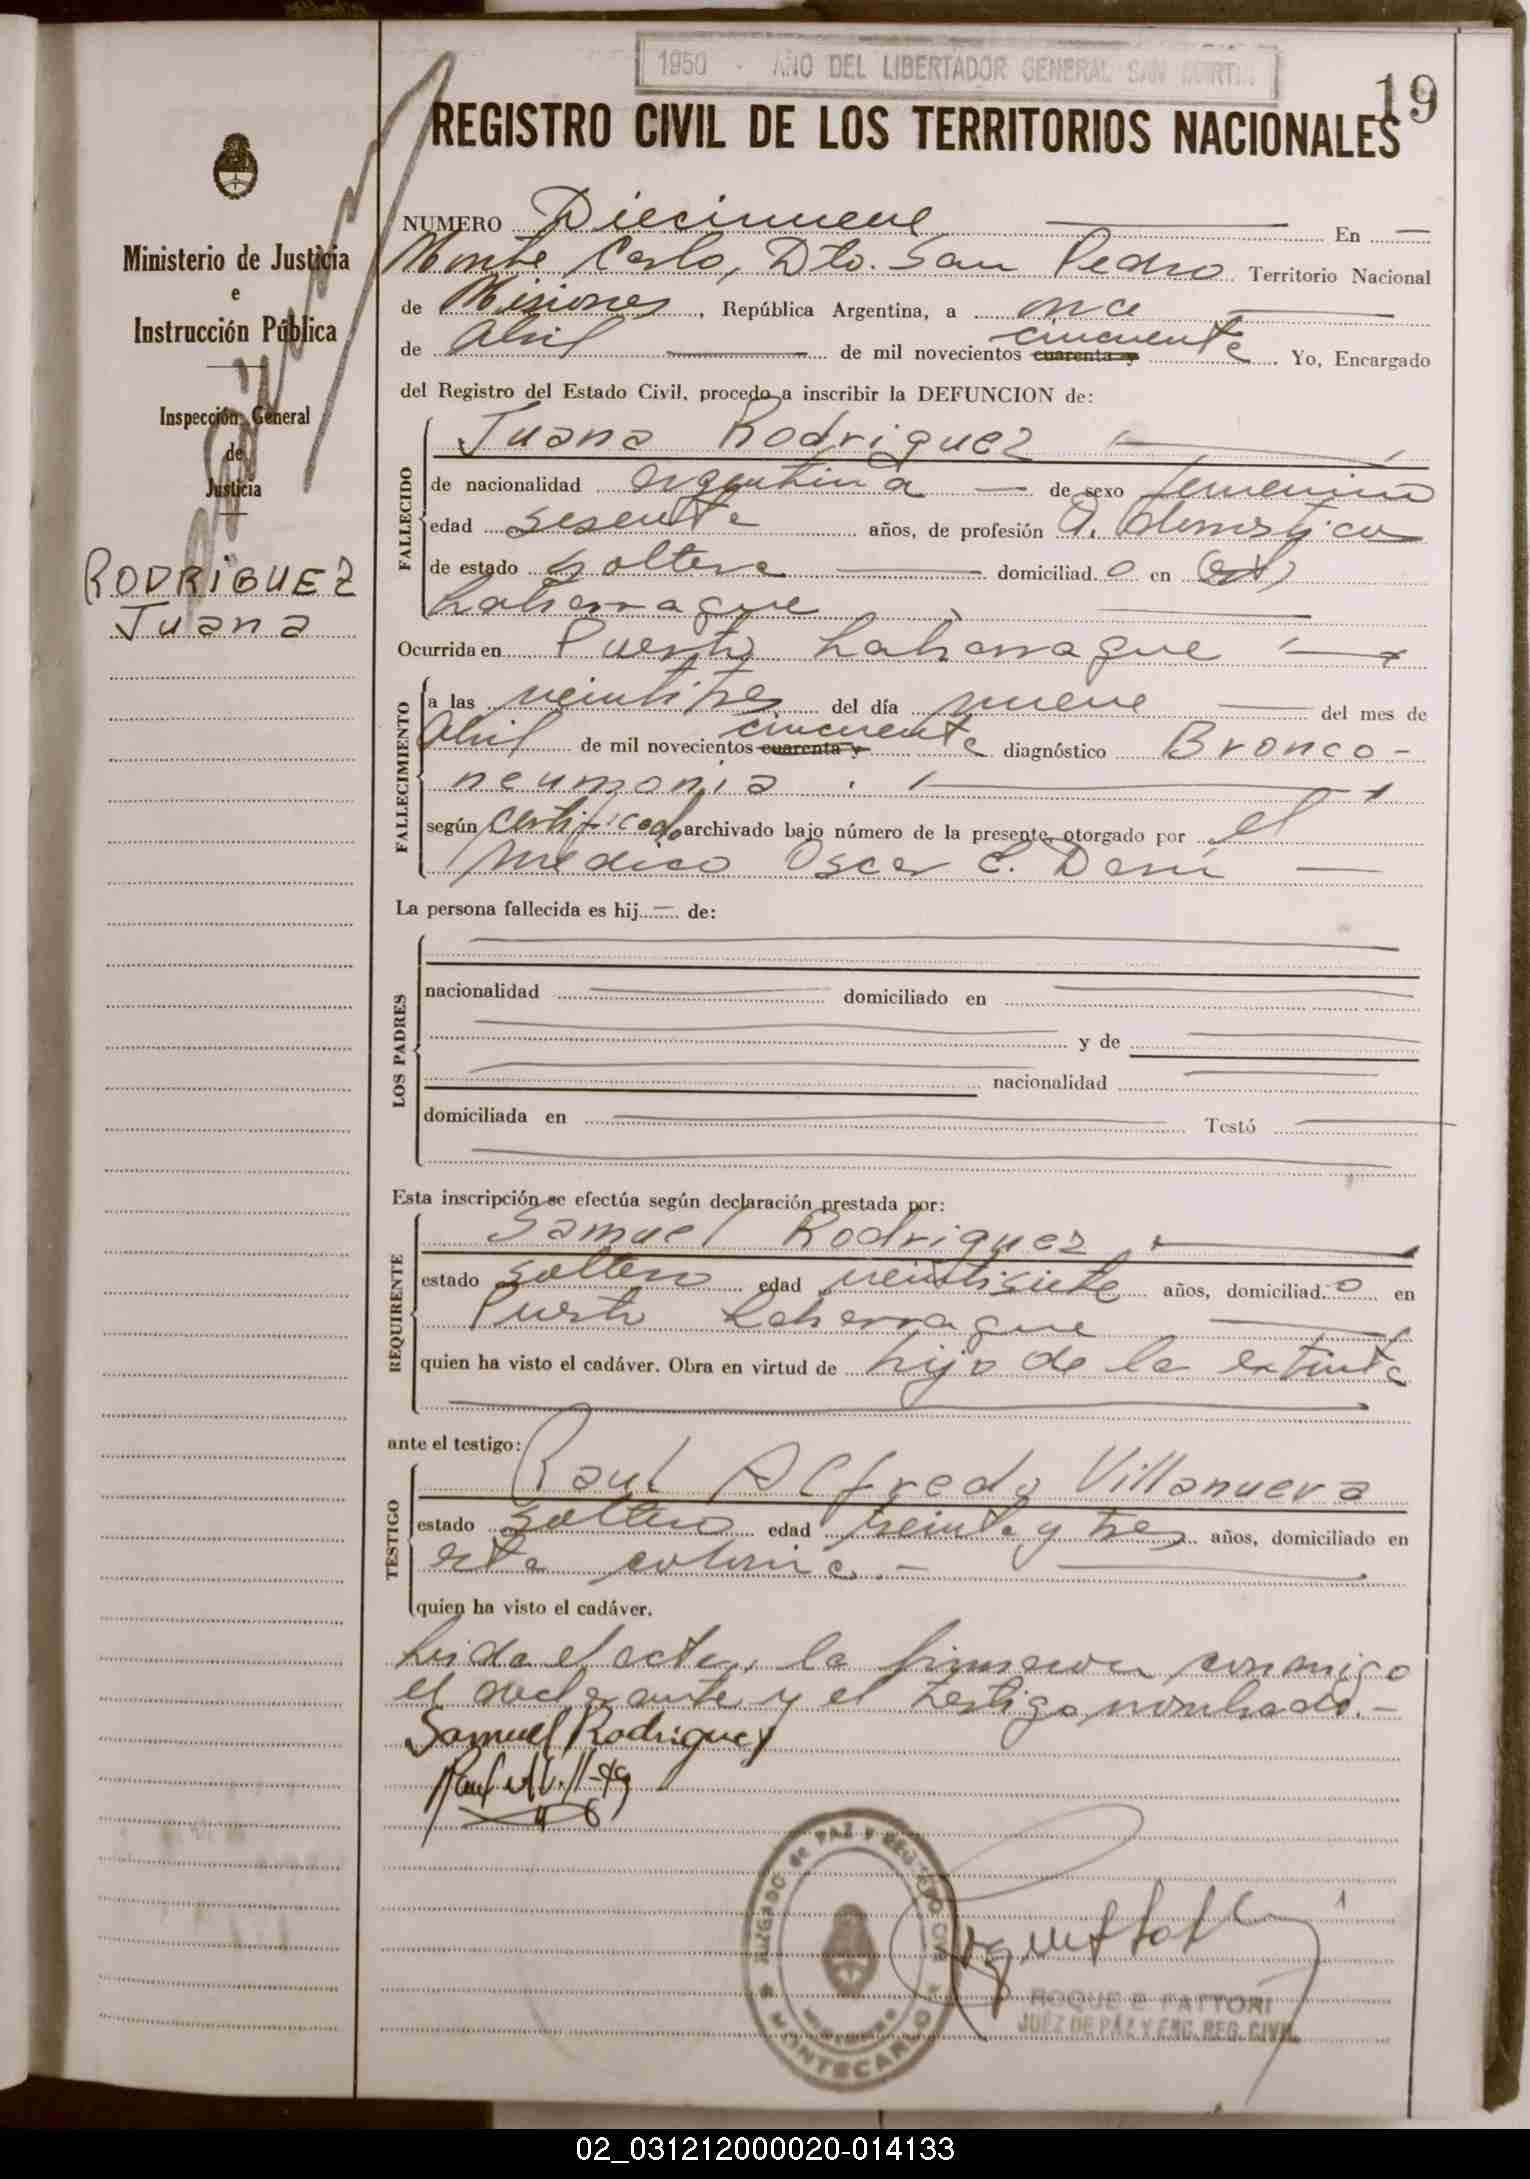 1950 - AÑO DEL LIBERTADOR GENERAL SAN MARTIN
19
REGISTRO CIVIL DE LOS TERRITORIOS NACIONALES
Ministerio de Justicia
e
Instrucción Pública
Inspección General
de
Justicia
RODRIGUEZ
Juana
NUMERO Diecinueve En
Monte Carlo, Dto. San Pedro Territorio Nacional
de Misiones, República Argentina, a once
de Abril de mil novecientos cuarenta y cincuenta. Yo, Encargado
del Registro del Estado Civil, procedo a inscribir la DEFUNCION de:
FALLECIDO
Juana Rodriguez
de nacionalidad argentina de sexo femenino
edad sesenta años, de profesión Q. domesticos
de estado soltera domiciliad o en
Laharrague
Ocurrida en Puerto Laharrague
FALLECIMIENTO
a las veintitres del día nueve del mes de
Abril de mil novecientos cuarenta y cincuenta diagnóstico Bronco-
neumonia.
según certificado archivado bajo número de la presente, otorgado por el
medico Oscar C.
La persona fallecida es hij de:
LOS PADRES
nacionalidad domiciliado en
y de
nacionalidad
domiciliada en Testó
Esta inscripción se efectúa según declaración prestada por:
REQUIRENTE
Samuel Rodriguez
estado soltero edad veintisiete años, domiciliad o en
Puerto Laharrague
quien ha visto el cadáver. Obra en virtud de hijo de la extinta
ante el testigo:
TESTIGO
Raul Alfredo Villanueva
estado soltero edad treinta y tres años, domiciliado en
esta colonia.-
quien ha visto el cadáver.
Leida el acta, la firmaron conmigo
el declarante y el testigo nombrado.-
Samuel Rodriguez
JUZGADO de PAZ Y REGISTRO CIVIL
MISIONES
MONTECARLO
ROQUE E. FATTORI
JUEZ DE PAZ Y ENC. REG. CIVIL
02_031212000020-014133